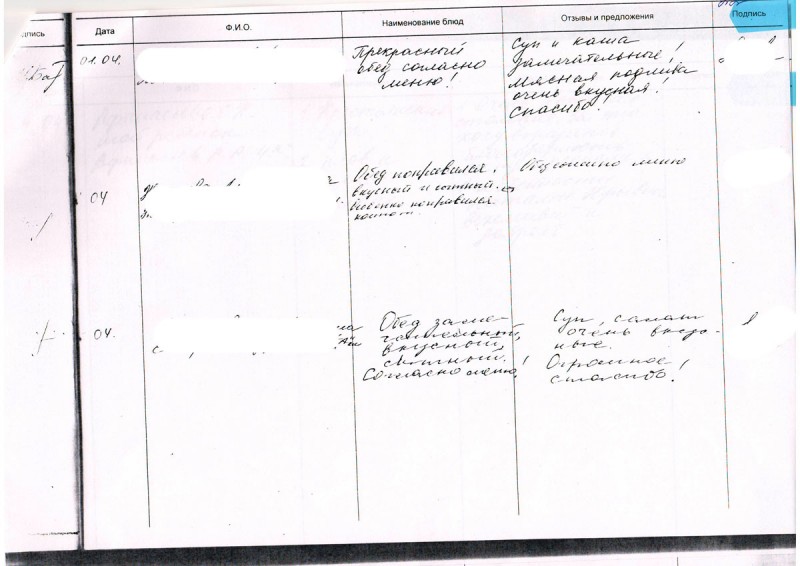 Дата Ф.И.О. Наименование блюд Отзывы и предложения Подпись
01.04.
Прекрасный
обед согласно
меню!
Суп и каша
замечательные!
Мясная подлива
очень вкусная!
Спасибо!
04
Обед понравился,
вкусный и сытный.
понравился
компот.
Обед согласно меню
04.
Обед заме-
чательный,
вкусный,
сытный!
Согласно меню!
Суп, салат
очень вкус-
ные.
Огромное
спасибо!